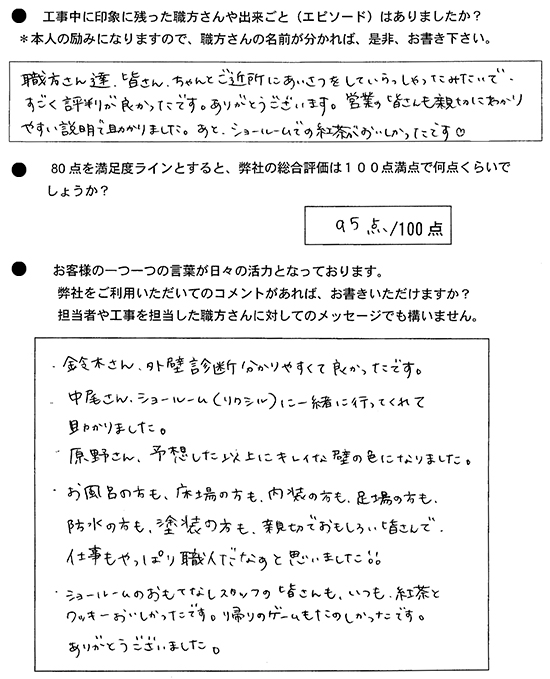 ● 工事中に印象に残った職方さんや出来ごと（エピソード）はありましたか？
＊本人の励みになりますので、職方さんの名前が分かれば、是非、お書き下さい。
職方さん達、皆さん、ちゃんとご近所にあいさつをしていらっしゃったみたいで、
すごく評判が良かったです。ありがとうございます。営業の皆さんも親切にわかり
やすい説明で助かりました。あと、ショールームでの紅茶がおいしかったです♡
● 80点を満足度ラインとすると、弊社の総合評価は１００点満点で何点くらいで
しょうか？
95点、/100点
● お客様の一つ一つの言葉が日々の活力となっております。
弊社をご利用いただいてのコメントがあれば、お書きいただけますか？
担当者や工事を担当した職方さんに対してのメッセージでも構いません。
・鈴木さん、外壁診断分かりやすくて良かったです。
・中尾さん、ショールーム（リクシル）に一緒に行ってくれて
助かりました。
・原野さん、予想した以上にキレイな壁の色になりました。
・お風呂の方も、床場の方も、内装の方も、足場の方も、
防水の方も、塗装の方も、親切でおもしろい皆さんで、
仕事もやっぱり職人だなのと思いました!!
・ショールームのおもてなしスタッフの皆さんも、いつも、紅茶と
クッキーおいしかったです。帰りのゲームもたのしかったです。
ありがとうございました。